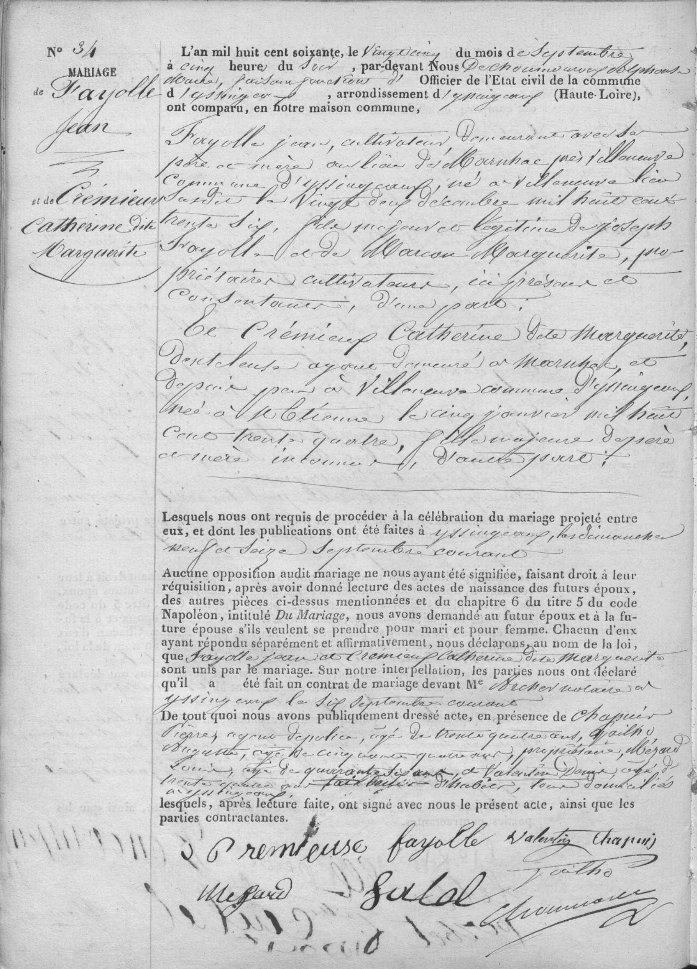 N° 34
MARIAGE
de Fayolle
Jean
et de Crémieux
Catherine dite
Marguerite
L'an mil huit cent soixante, le Vingt cinq du mois de Septembre
à cinq heure du Soir, par-devant Nous
Maire, Officier de l'Etat civil de la commune
d'yssingeaux, arrondissement d'yssingeaux (Haute-Loire),
ont comparu, en notre maison commune,
Fayolle jean, cultivateur, Demeurant avec ses
père et mère au lieu de Marnhac près Villeneuve
Commune d'yssingeaux, né à Villeneuve lieu
susdit le Vingt deux décembre mil huit cent
trente Six, fils majeur et légitime de joseph
Fayolle et de Marguerite, pro-
priétaires cultivateurs, ici présens et
Consentants, d'une part:
Et Crémieux Catherine dite Marguerite,
Denteleuse ayant demeuré à Marnhac, et
depuis peu à Villeneuve commune d'yssingeaux,
née à St Etienne le cinq janvier mil huit
Cent trente quatre, fille majeure de père
et mère inconnus, d'autre part:
Lesquels nous ont requis de procéder à la célébration du mariage projeté entre
eux, et dont les publications ont été faites à yssingeaux, les dimanches
neuf et Seize Septembre courant
Aucune opposition audit mariage ne nous ayant été signifiée, faisant droit à leur
réquisition, après avoir donné lecture des actes de naissance des futurs époux,
des autres pièces ci-dessus mentionnées et du chapitre 6 du titre 5 du code
Napoléon, intitulé Du Mariage, nous avons demandé au futur époux et à la fu-
ture épouse s'ils veulent se prendre pour mari et pour femme. Chacun d'eux
ayant répondu séparément et affirmativement, nous déclarons, au nom de la loi,
que Fayolle jean et Crémieux Catherine dite Marguerite
sont unis par le mariage. Sur notre interpellation, les parties nous ont déclaré
qu'il a été fait un contrat de mariage devant Me notaire à
yssingeaux le Six Septembre courant
De tout quoi nous avons publiquement dressé acte, en présence de Chapuis
Pierre, agent de police, âgé de trente quatre ans,
Auguste, âgé de Cinquante quatre ans, propriétaire,
Louis, âgé de quarante Six ans, et Valentin âgé de
trente quatre ans tous domiciliés
à yssingeaux
lesquels, après lecture faite, ont signé avec nous le présent acte, ainsi que les
parties contractantes.
fayolle Valentin Chapuis